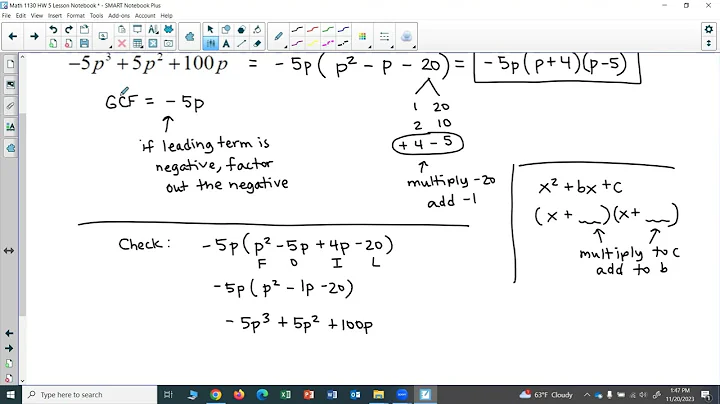 Math 1130 HW 5 Lesson Notebook * - SMART Notebook Plus
File Edit View Insert Format Tools Add-ons Account Help
-5p³ + 5p² + 100p = -5p( p² - p - 20 ) = -5p(p+4)(p-5)
GCF = -5p
1 20
2 10
+4 -5
if leading term is
negative, factor
out the negative
multiply -20
add -1
x² + bx + c
(x + __)(x + __)
multiply to c
add to b
Check: -5p(p² - 5p + 4p - 20)
F O I L
-5p(p² - 1p - 20)
-5p³ + 5p² + 100p
Type here to search
63°F Cloudy
1:47 PM
11/20/2023